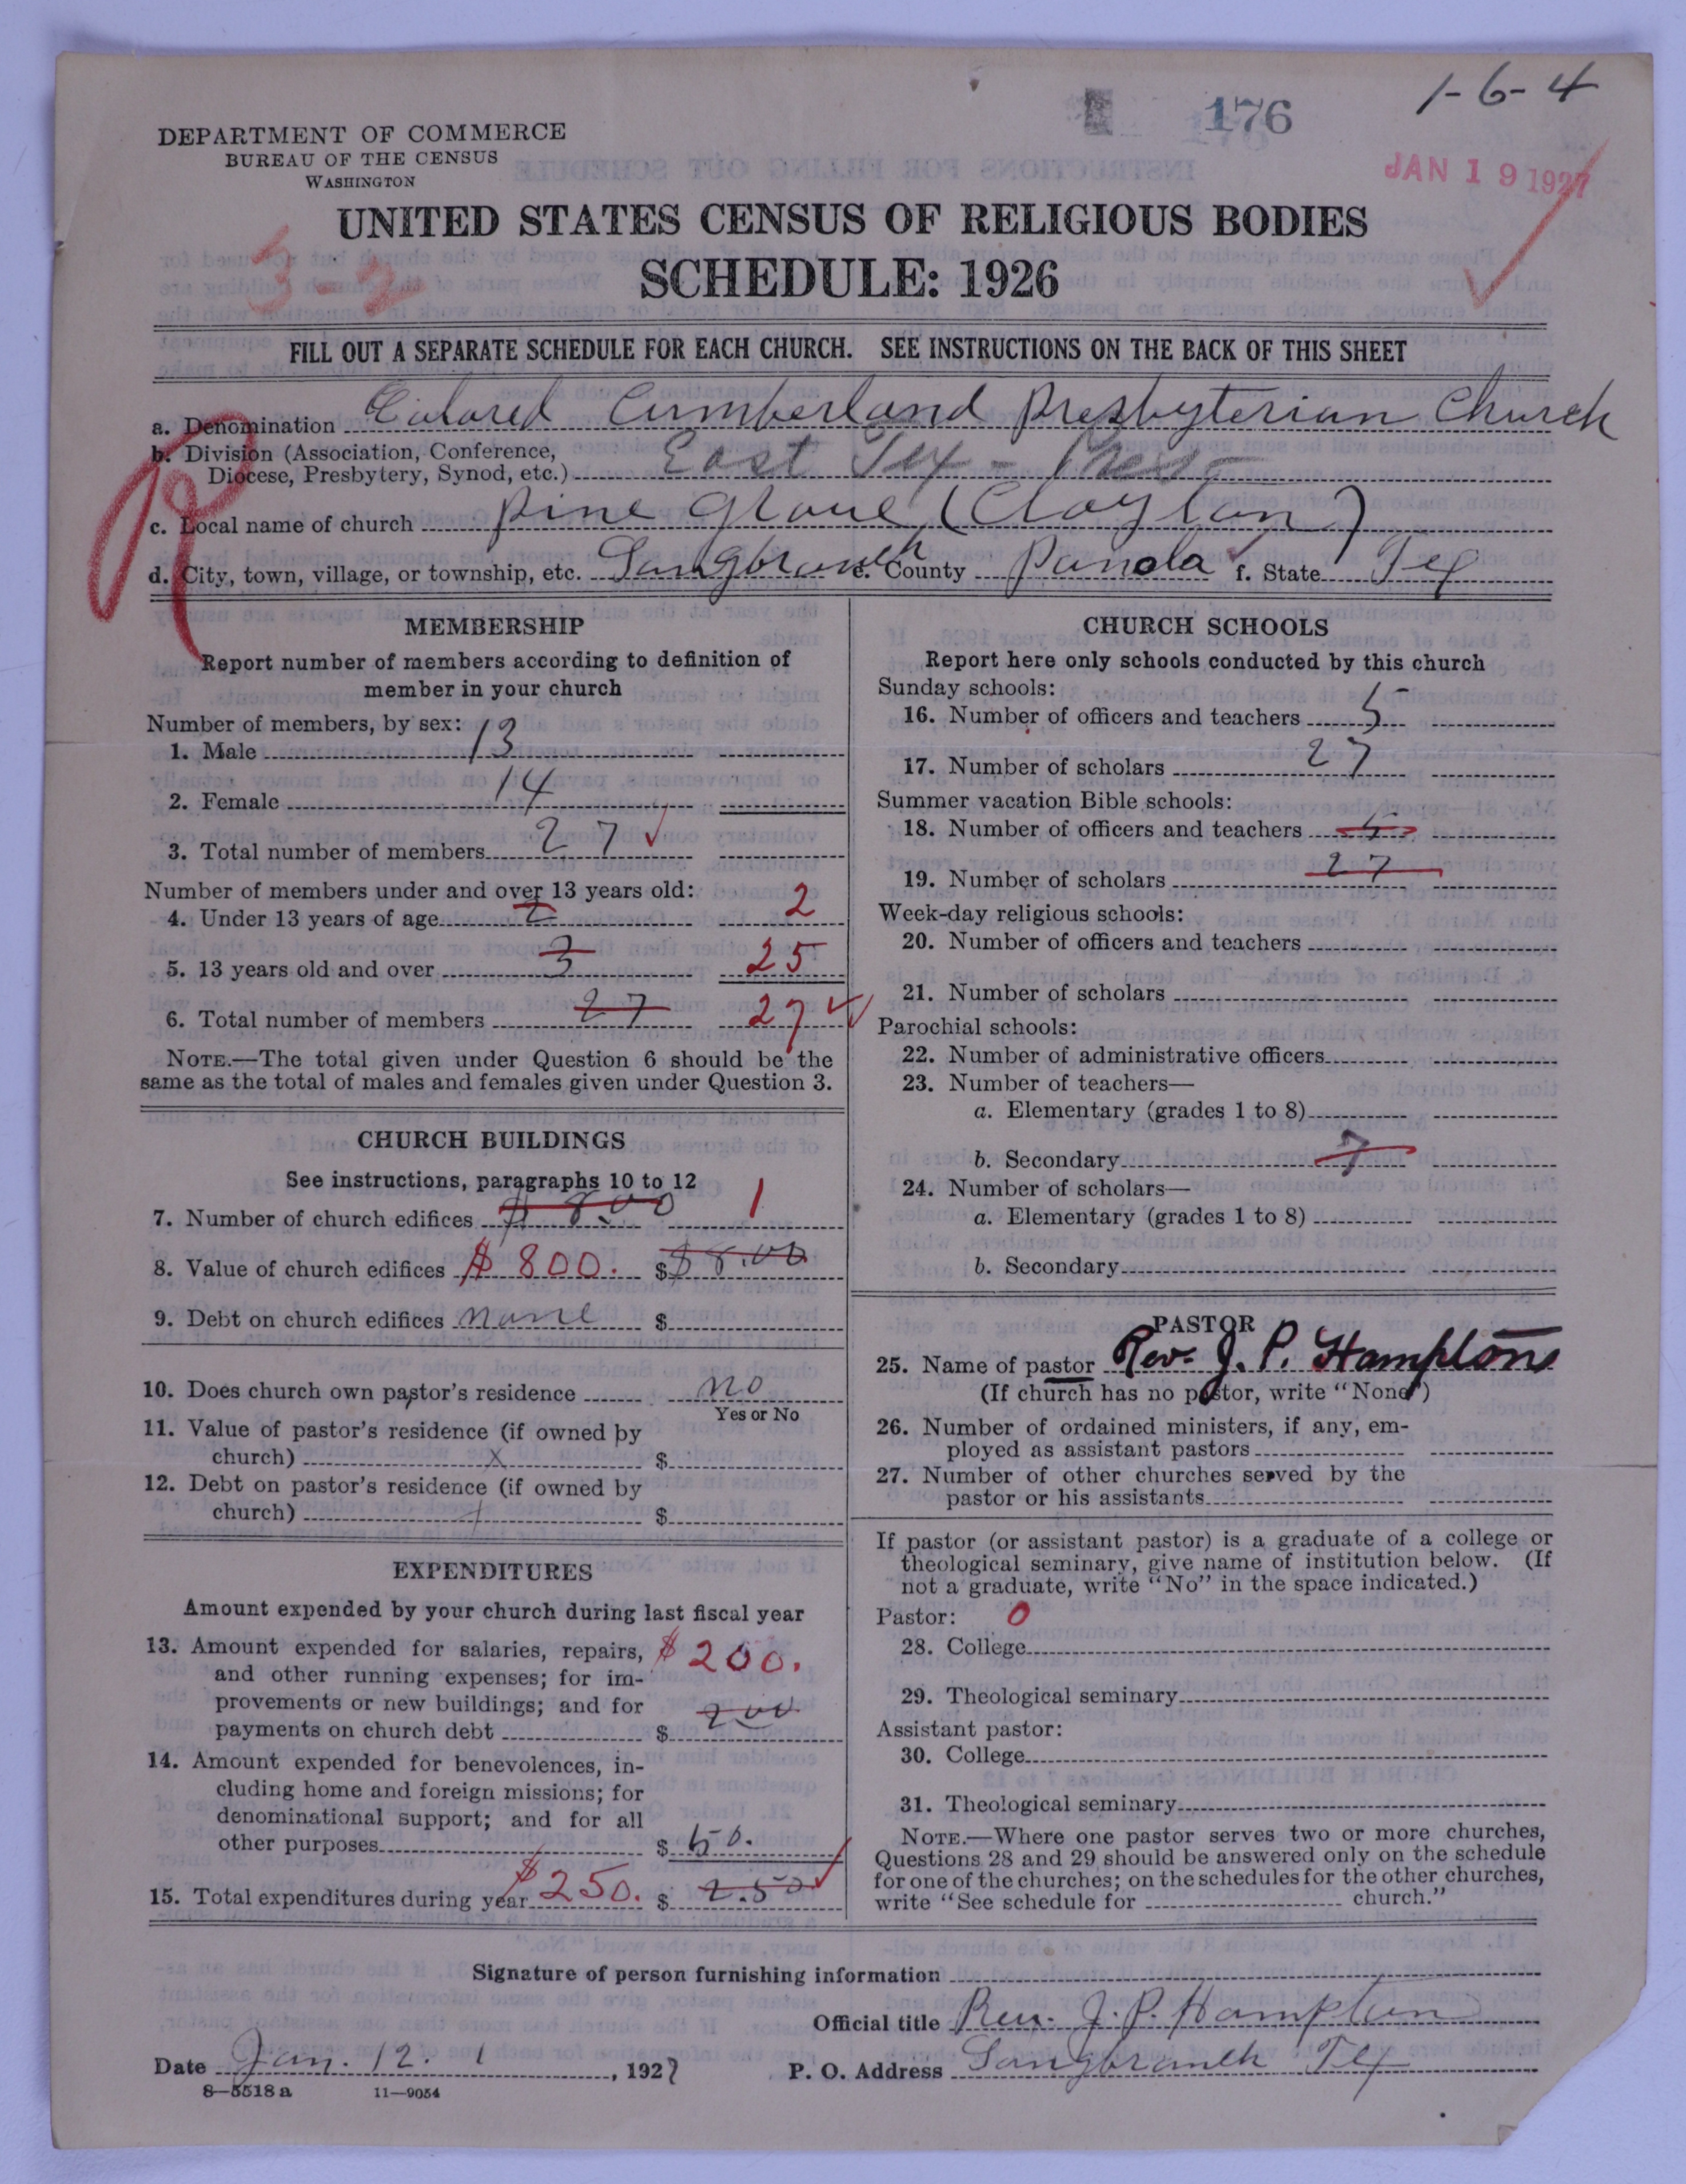 176
1-6-4
DEPARTMENT OF COMMERCE
BUREAU OF THE CENSUS
WASHINGTON
JAN 19 1927
UNITED STATES CENSUS OF RELIGIOUS BODIES
3-2
SCHEDULE: 1926
FILL OUT A SEPARATE SCHEDULE FOR EACH CHURCH. SEE INSTRUCTIONS ON THE BACK OF THIS SHEET
a. Denomination Colored Cumberland Presbyterian Church
b. Division (Association, Conference,
Diocese, Presbytery, Synod, etc.) East Tex - Pres
c. Local name of church Pine Grove (Clayton)
d. City, town, village, or township, etc. Longbranch e. County Panola f. State Tex
MEMBERSHIP
Report number of members according to definition of
member in your church
Number of members, by sex:
1. Male 13
2. Female 14
3. Total number of members 27
Number of members under and over 13 years old:
4. Under 13 years of age 2 2
5. 13 years old and over 3 25
6. Total number of members 27 27
NOTE.—The total given under Question 6 should be the
same as the total of males and females given under Question 3.
CHURCH BUILDINGS
See instructions, paragraphs 10 to 12
7. Number of church edifices $ 800 1
8. Value of church edifices $ 800. $ $8.00
9. Debt on church edifices none $
10. Does church own pastor's residence no
Yes or No
11. Value of pastor's residence (if owned by
church) x $
12. Debt on pastor's residence (if owned by
church) $
EXPENDITURES
Amount expended by your church during last fiscal year
13. Amount expended for salaries, repairs, $200.
and other running expenses; for im-
provements or new buildings; and for
payments on church debt $ 200
14. Amount expended for benevolences, in-
cluding home and foreign missions; for
denominational support; and for all
other purposes $ 50.
15. Total expenditures during year $250. $ 2.50
CHURCH SCHOOLS
Report here only schools conducted by this church
Sunday schools:
16. Number of officers and teachers 5
17. Number of scholars 27
Summer vacation Bible schools:
18. Number of officers and teachers 5
19. Number of scholars 27
Week-day religious schools:
20. Number of officers and teachers
21. Number of scholars
Parochial schools:
22. Number of administrative officers
23. Number of teachers—
a. Elementary (grades 1 to 8)
b. Secondary 7
24. Number of scholars—
a. Elementary (grades 1 to 8)
b. Secondary
PASTOR
25. Name of pastor Rev. J. P. Hamptons
(If church has no pastor, write "None")
26. Number of ordained ministers, if any, em-
ployed as assistant pastors
27. Number of other churches served by the
pastor or his assistants
If pastor (or assistant pastor) is a graduate of a college or
theological seminary, give name of institution below. (If
not a graduate, write "No" in the space indicated.)
Pastor: 0
28. College
29. Theological seminary
Assistant pastor:
30. College
31. Theological seminary
NOTE.—Where one pastor serves two or more churches,
Questions 28 and 29 should be answered only on the schedule
for one of the churches; on the schedules for the other churches,
write "See schedule for church."
Signature of person furnishing information
Official title Rev. J. P. Hampton
Date Jan. 12. 1, 1927 P. O. Address Longbranch Tex
8—5518 a 11—9054